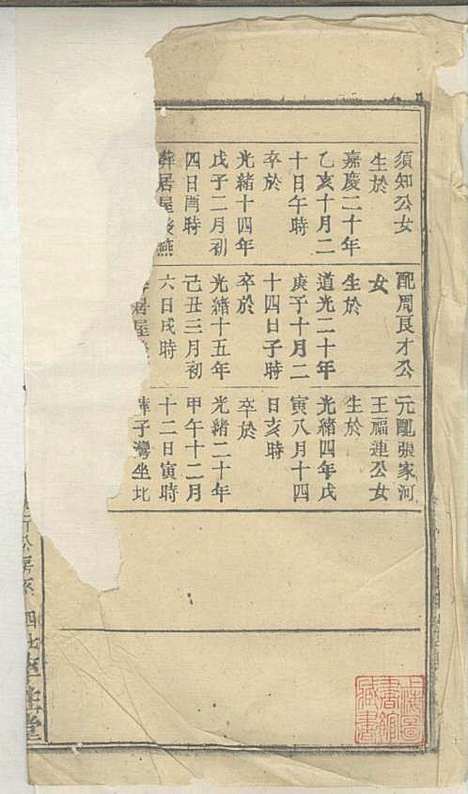 須知公女
生於
嘉慶二十年
乙亥十月二
十日午時
卒於
光緒十四年
戊子二月初
四日酉時
葬居屋後燕
配周良才公
女
生於
道光二十年
庚子十月二
十四日子時
卒於
光緒十五年
己丑三月初
六日戌時
居屋
元配張家河
王福連公女
生於
光緒四年戊
寅八月十四
日亥時
卒於
光緒二十年
甲午十二月
十二日寅時
葬子灣坐北
房
四七
孝
堂
上海圖
書館
藏書